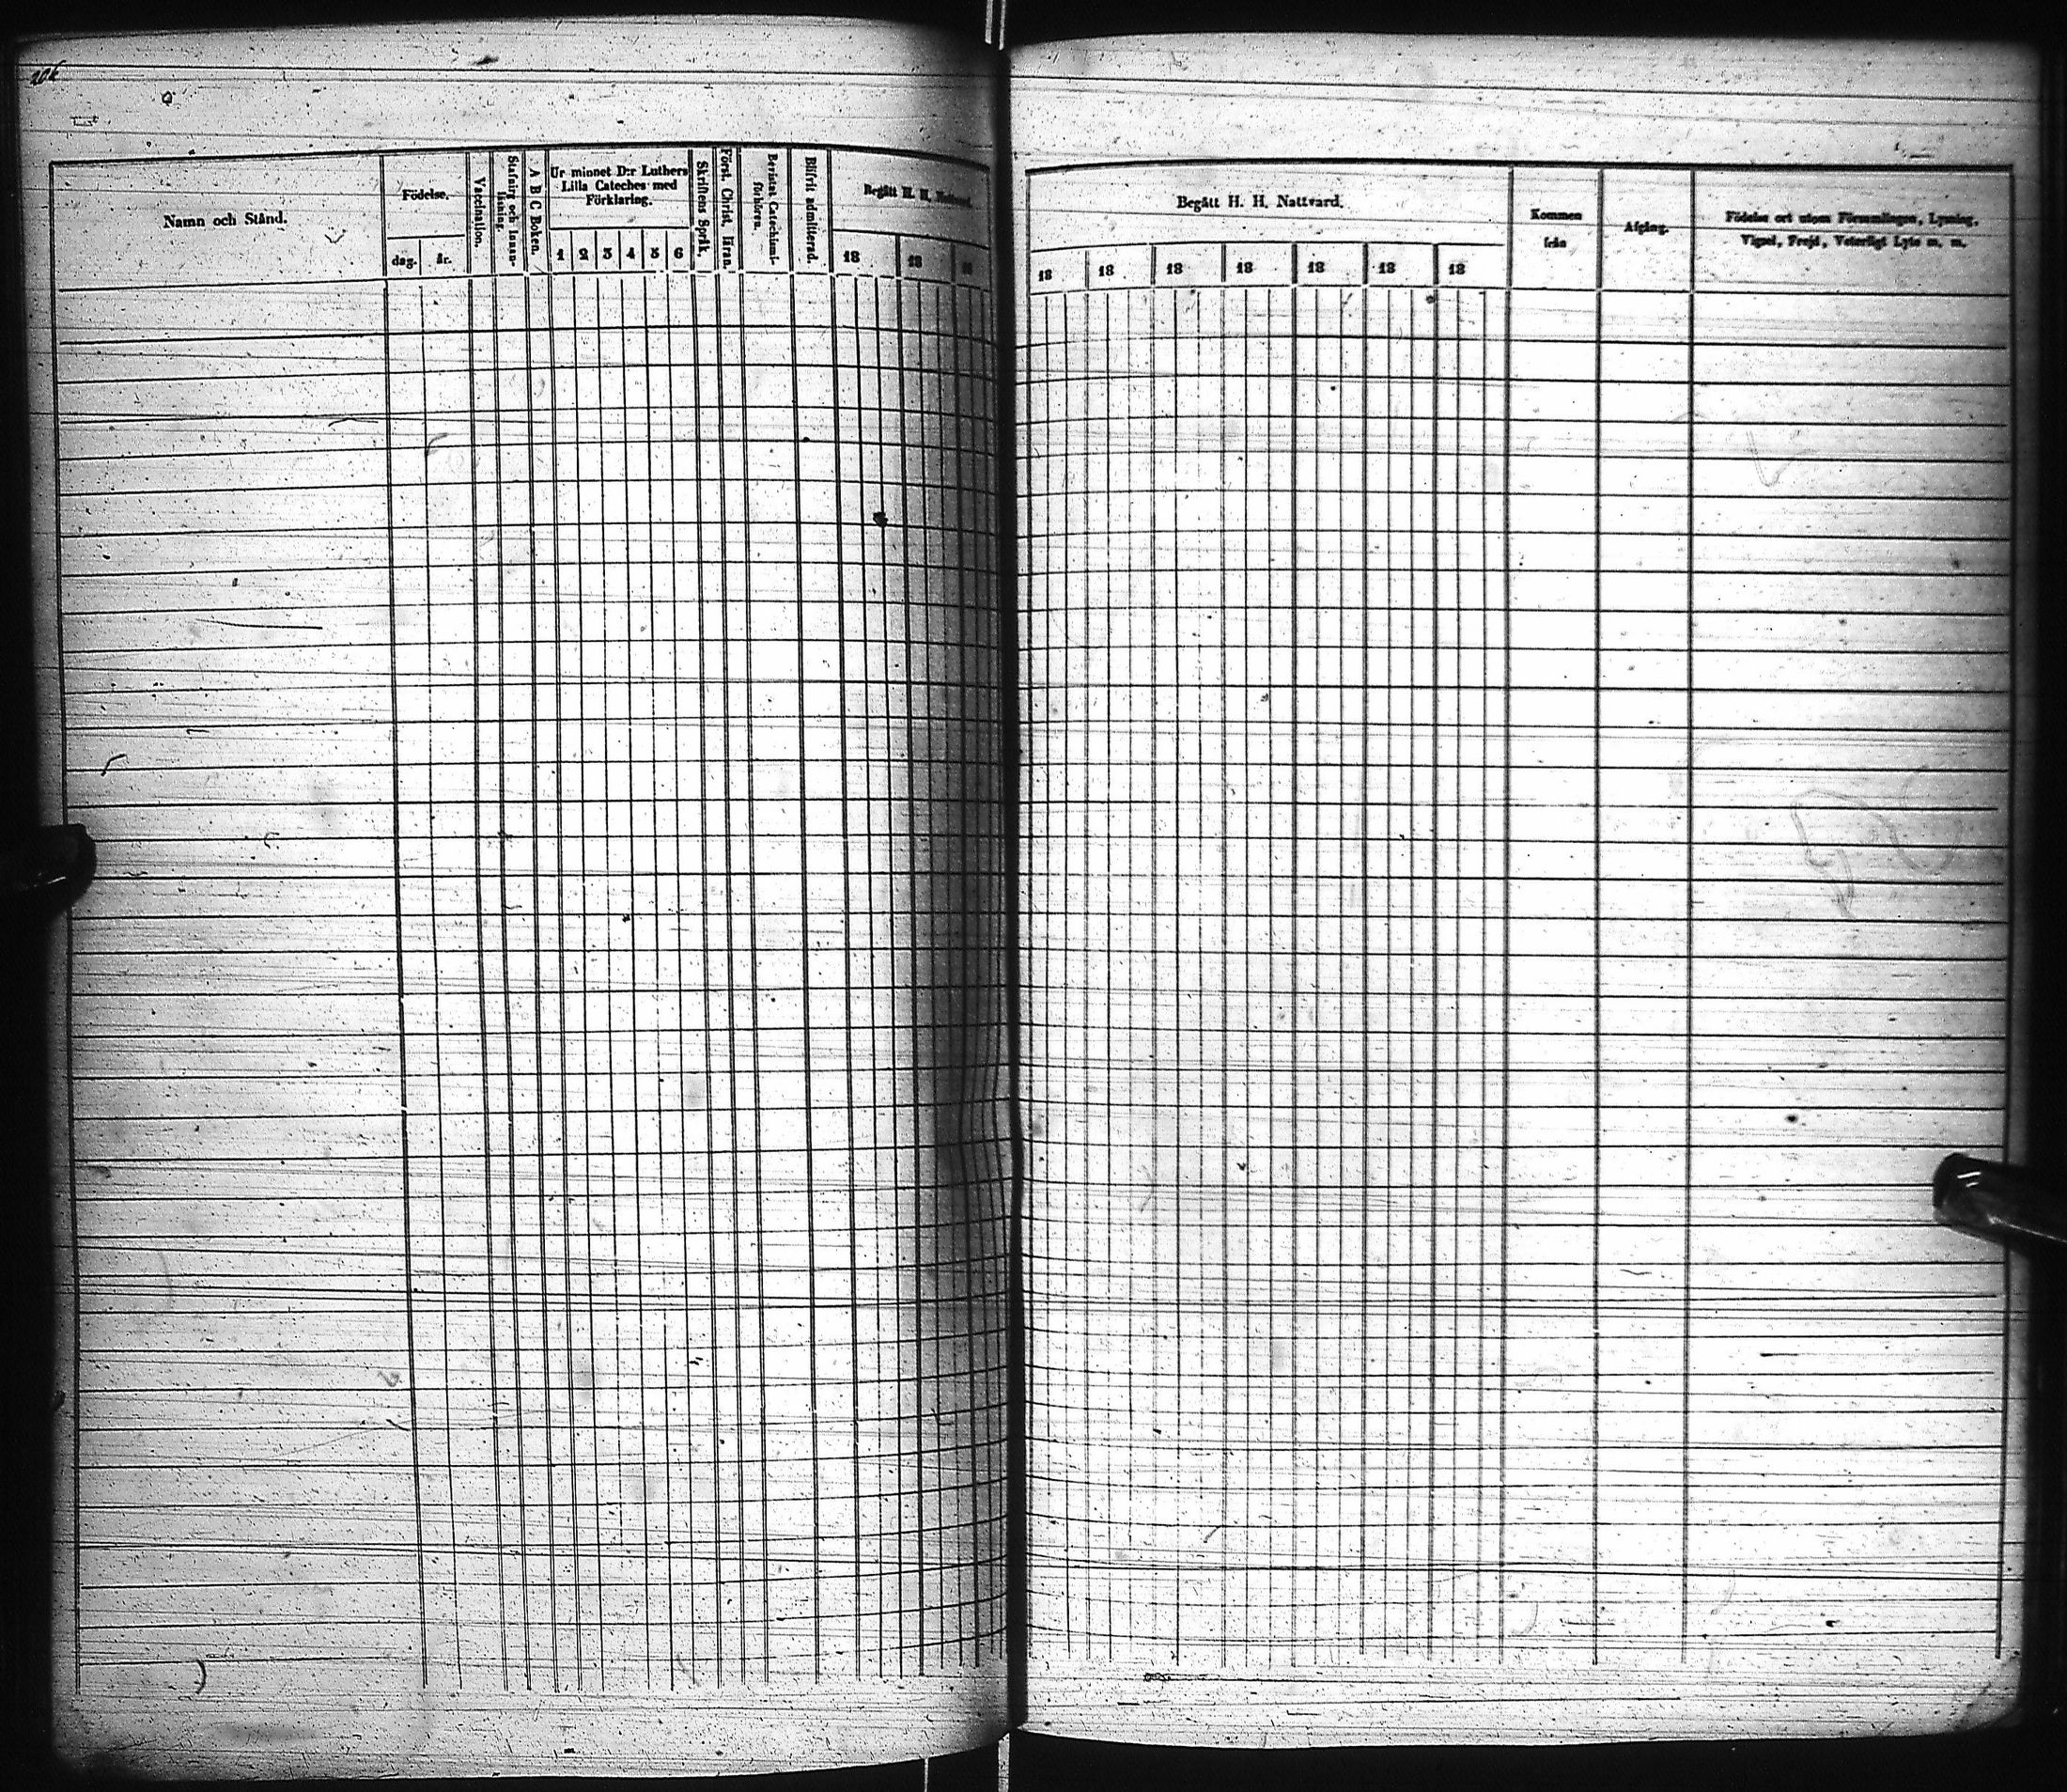 Namn och Stånd.
Födelse.
dag.
år.
Vaccination.
Stafning och Innan-
läsning.
A B C Boken.
Ur minnet D:r Luthers
Lilla Cateches med
Förklaring.
1 2 3 4 5 6
Skriftens Språk.
Först. Christ. läran.
Bevistat Catechismi-
förhören.
Blifvit admitterad.
Begått H. H. Nattvard.
18 18 18
Begått H. H. Nattvard.
18 18 18 18 18 18 18
Kommen
från
Afgång.
Födelse ort utom Församlingen, Lysning,
Vigsel, Frejd, Veterligt Lyte m. m.